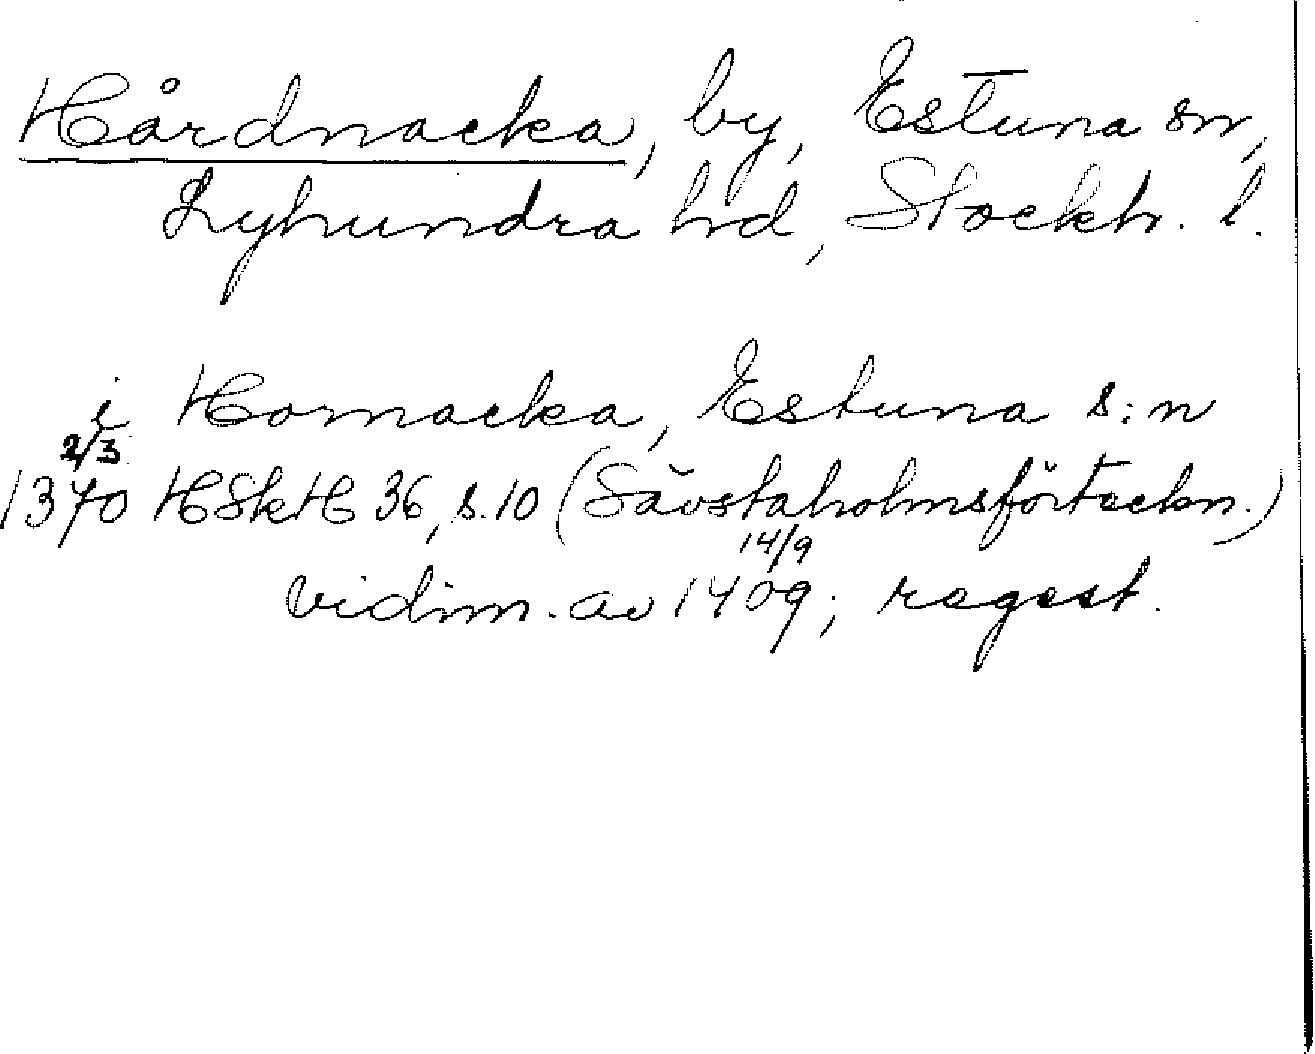 Hårdnacka, by, Estuna sn,
Lyhundra hd, Stockh. l.
i Hornacka, Estuna s:n
2/3
1370 HSkH 36, s. 10 (Sävstaholmsförteckn.)
14/9
vidim. av 1409; regest.